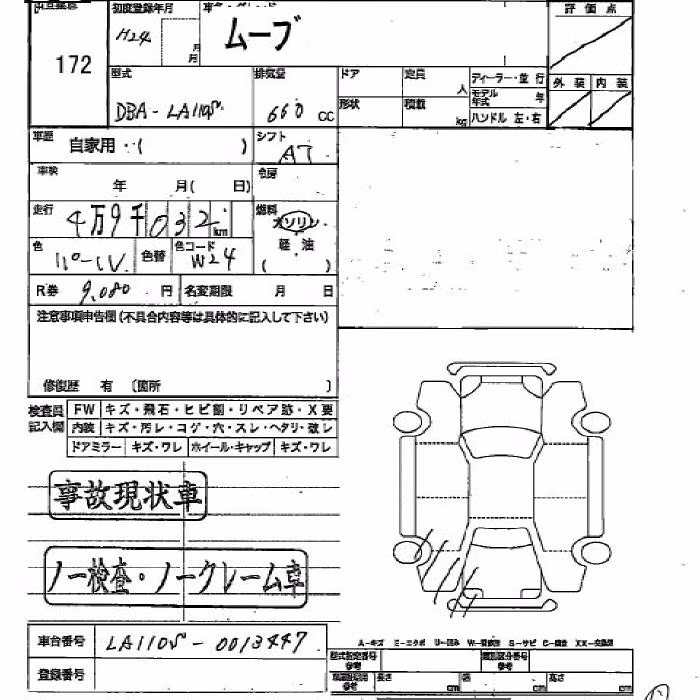 初度登録年月
評価点
172
H24
月
月
ムーブ
型式
排気量
ドア
定員
人
ディーラー・並行
外装
内装
DBA-LA110S
660 CC
形状
積載
kg
モデル年式
年
ハンドル 左・右
車歴
自家用・( )
シフト
AT
車検
年 月( 日)
冷房
走行
4万9千032 km
燃料
ガソリン
軽油
( )
色
パールV
色替
色コード
W24
R券 9,080 円
名変期限 月 日
注意事項申告欄(不具合内容等は具体的に記入して下さい)
修復歴 有 〔箇所 〕
検査員記入欄
FW キズ・飛石・ヒビ割・リペア跡・X要
内装 キズ・汚レ・コゲ・穴・スレ・ヘタリ・破レ
ドアミラー キズ・ワレ ホイール・キャップ キズ・ワレ
事故現状車
ノー検査・ノークレーム車
A-キズ
車台番号
LA110S-0013447
型式指定番号
参考
類別区分番号
参考
登録番号
長さ
cm
幅
cm
高さ
cm